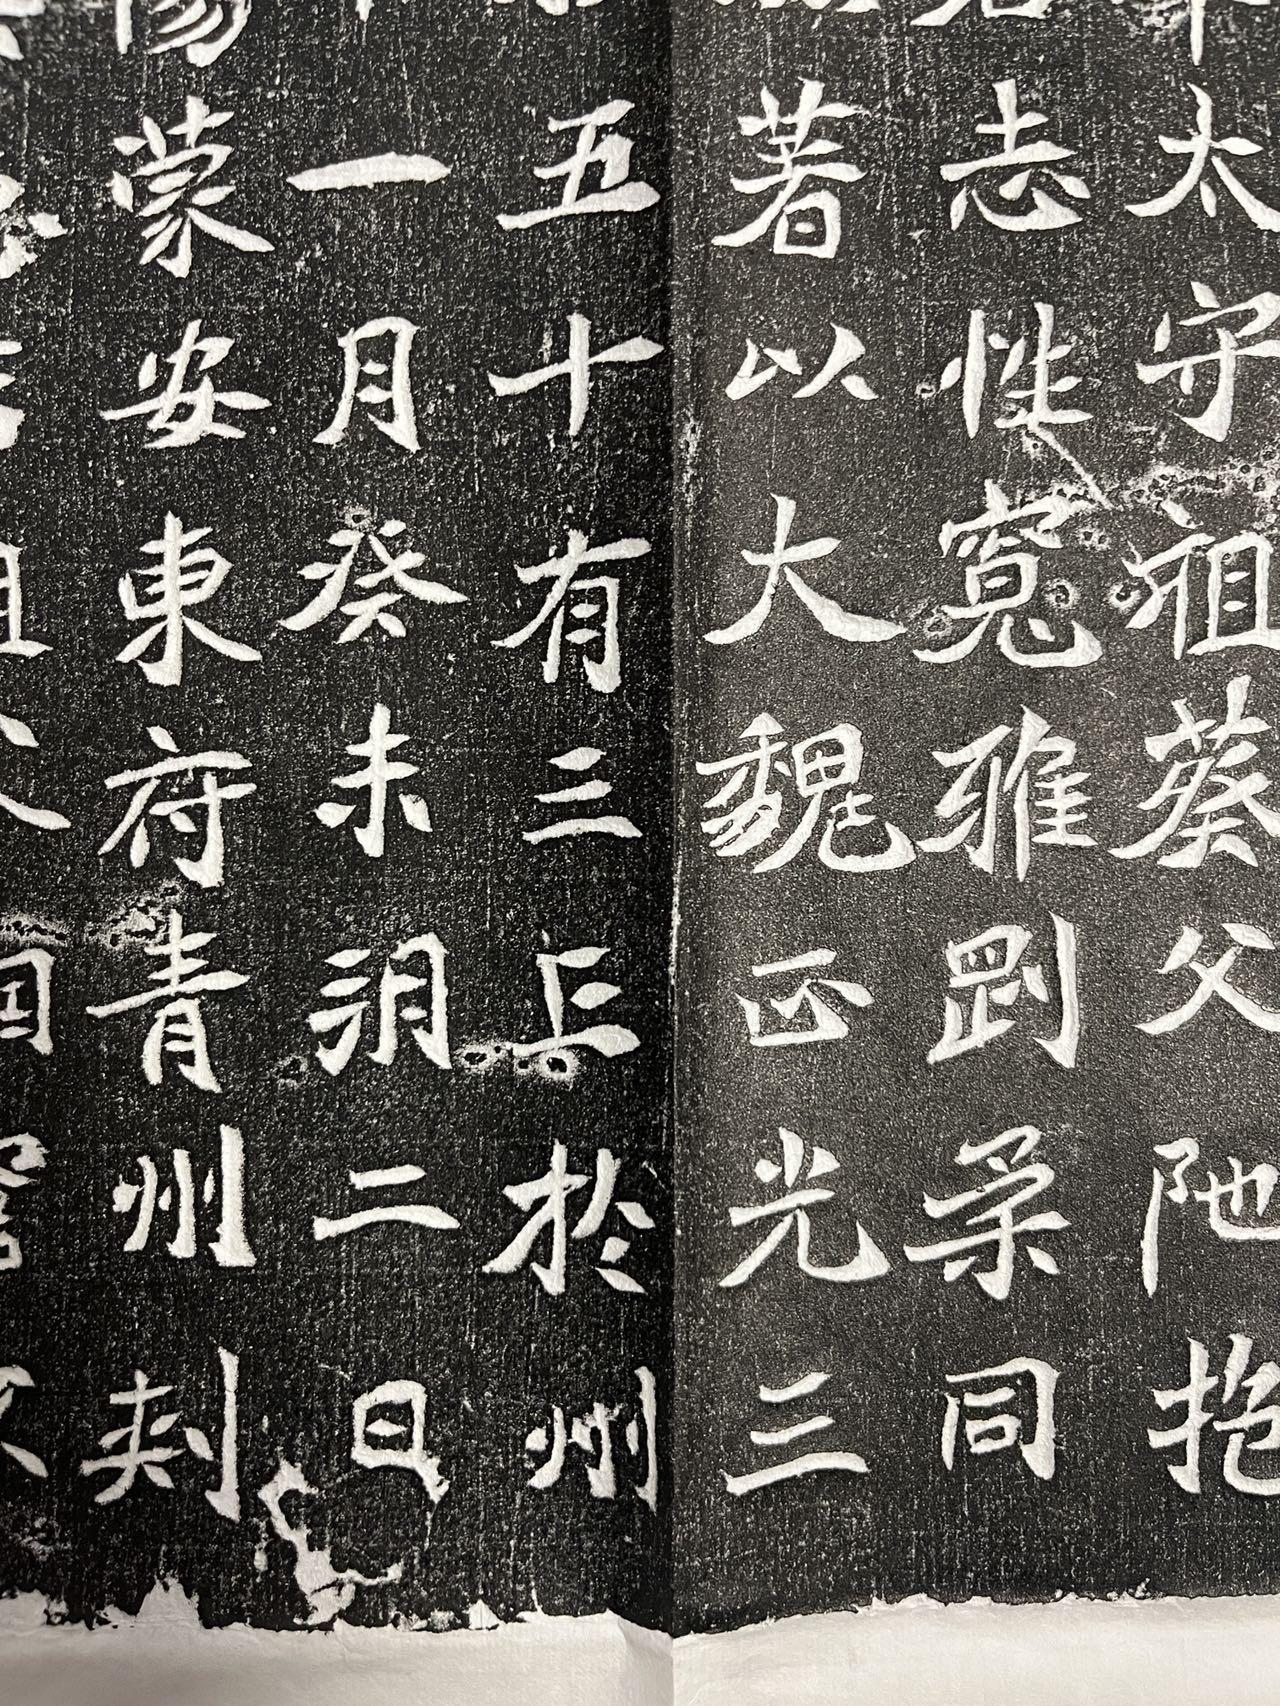 太守祖蔡父阤抱
志性寬雅剛柔同
著以大魏正光三
五十有三亡於州
一月癸未朔二日
蒙安東府青州刾